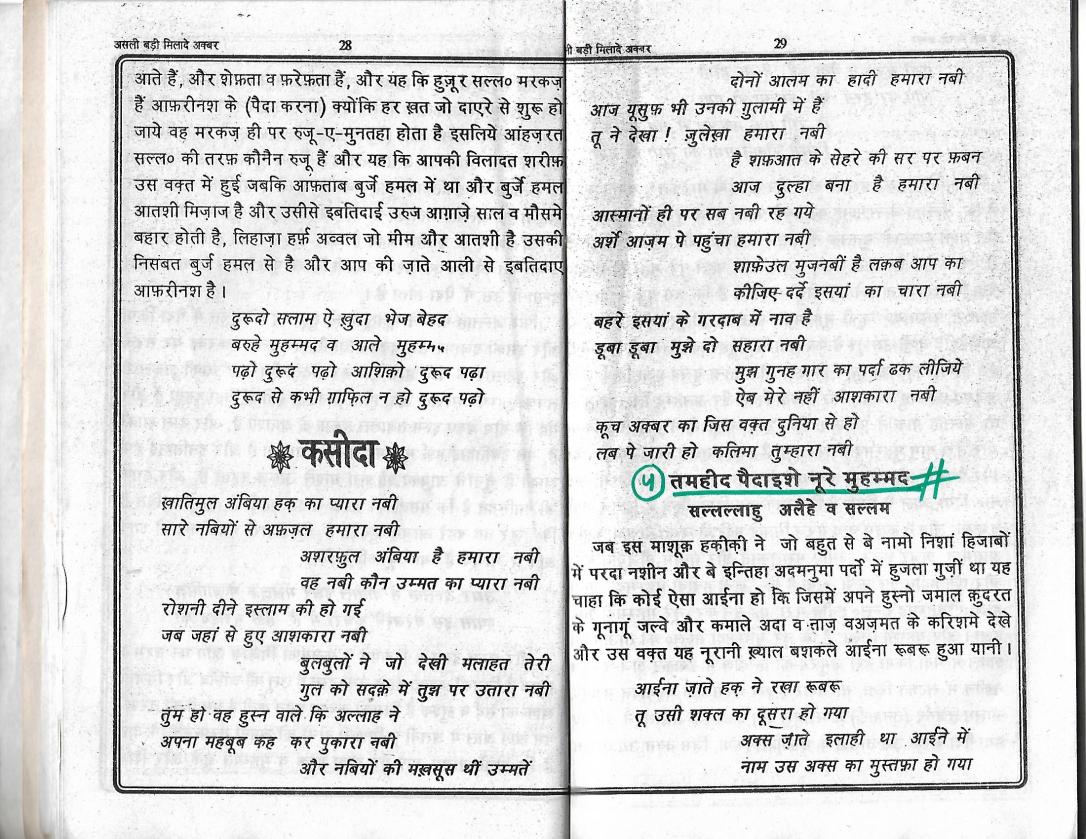 असली बड़ी मिलादे अक्बर 28
आते हैं, और शेफ़ता व फ़रेफ़ता हैं, और यह कि हुज़ूर सल्ल० मरकज़
हैं आफ़रीनश के (पैदा करना) क्योंकि हर ख़त जो दाएरे से शुरू हो
जाये वह मरकज़ ही पर रुजू-ए-मुनतहा होता है इसलिये आंहज़रत
सल्ल० की तरफ़ कौनैन रुजू हैं और यह कि आपकी विलादत शरीफ़
उस वक़्त में हुई जबकि आफ़ताब बुर्जे हमल में था और बुर्जे हमल
आतशी मिज़ाज है और उसीसे इबतिदाई उरुज आग़ाज़े साल व मौसमे
बहार होती है, लिहाज़ा हर्फ़ अव्वल जो मीम और आतशी है उसकी
निसबत बुर्ज हमल से है और आप की ज़ाते आली से इबतिदाए
आफ़रीनश है।
दुरूदो सलाम ऐ ख़ुदा भेज बेहद
बरुहे मुहम्मद व आले
पढ़ो दुरूद पढ़ो आशिक़ो दुरूद पढ़ा
दुरूद से कभी ग़ाफ़िल न हो दुरूद पढ़ो
कसीदा
ख़ातिमुल अंबिया हक़ का प्यारा नबी
सारे नबियों से अफ़ज़ल हमारा नबी
अशरफ़ुल अंबिया है हमारा नबी
वह नबी कौन उम्मत का प्यारा नबी
रोशनी दीने इस्लाम की हो गई
जब जहां से हुए आशकारा नबी
बुलबुलों ने जो देखी मलाहत तेरी
गुल को सदक़े में तुझ पर उतारा नबी
तुम हो वह हुस्न वाले कि अल्लाह ने
अपना महबूब कह कर पुकारा नबी
और नबियों की मख़सूस थीं उम्मतें
बड़ी मिलादे अक्बर 29
दोनों आलम का हादी हमारा नबी
आज यूसुफ़ भी उनकी ग़ुलामी में हैं
तू ने देखा ! ज़ुलेख़ा हमारा नबी
है शफ़आत के सेहरे की सर पर फ़बन
आज दुल्हा बना है हमारा नबी
आस्मानों ही पर सब नबी रह गये
अर्शे आज़म पे पहुंचा हमारा नबी
शाफ़ेउल मुजनबीं है लक़ब आप का
कीजिए दर्दे इसयां का चारा नबी
बहरे इसयां के गरदाब में नाव है
डूबा डूबा मुझे दो सहारा नबी
मुझ गुनह गार का पर्दा ढक लीजिये
ऐब मेरे नहीं आशकारा नबी
कूच अक्बर का जिस वक़्त दुनिया से हो
लब पे जारी हो कलिमा तुम्हारा नबी
५ तमहीद पैदाइशे नूरे मुहम्मद #
सल्लल्लाहु अलैहे व सल्लम
जब इस माशूक़ हक़ीक़ी ने जो बहुत से बे नामो निशां हिजाबों
में परदा नशीन और बे इन्तिहा अद्मनुमा पर्दों में हुजला गुज़ीं था यह
चाहा कि कोई ऐसा आईना हो कि जिसमें अपने हुस्नो जमाल क़ुदरत
के गूनागूं जल्वे और कमाले अदा व नाज़ वअज़मत के करिशमे देखे
और उस वक्त यह नूरानी ख़्याल बशकले आईना रूबरू हुआ यानी।
आईना ज़ाते हक़ ने रखा रूबरू
तू उसी शक्ल का दूसरा हो गया
अक्स ज़ाते इलाही था आईने में
नाम उस अक्स का मुस्तफ़ा हो गया